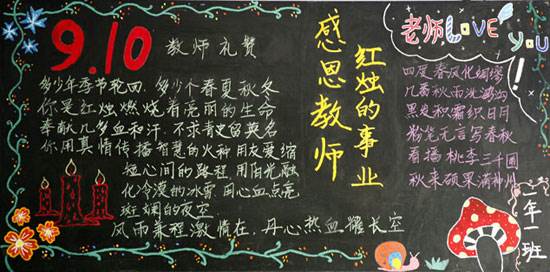 9.10
教师礼赞
多少年季节轮回,多少个春夏秋冬
你是红烛燃烧着亮丽的生命
奉献几多血和汗,不求青史留英名
你用真情传播智慧的火种用友爱缩
短心间的路程用阳光融
化冷漠的冰雪用心血点亮
斑斓的夜空
风雨兼程激情在,丹心热血耀长空
感恩教师
红烛的事业
老师LOVE you
四度春风化绸缪
几番秋雨洗鸿沟
黑发积霜织日月
粉笔无言写春秋
看播桃李三千圃
秋来硕果满神州
二年一班